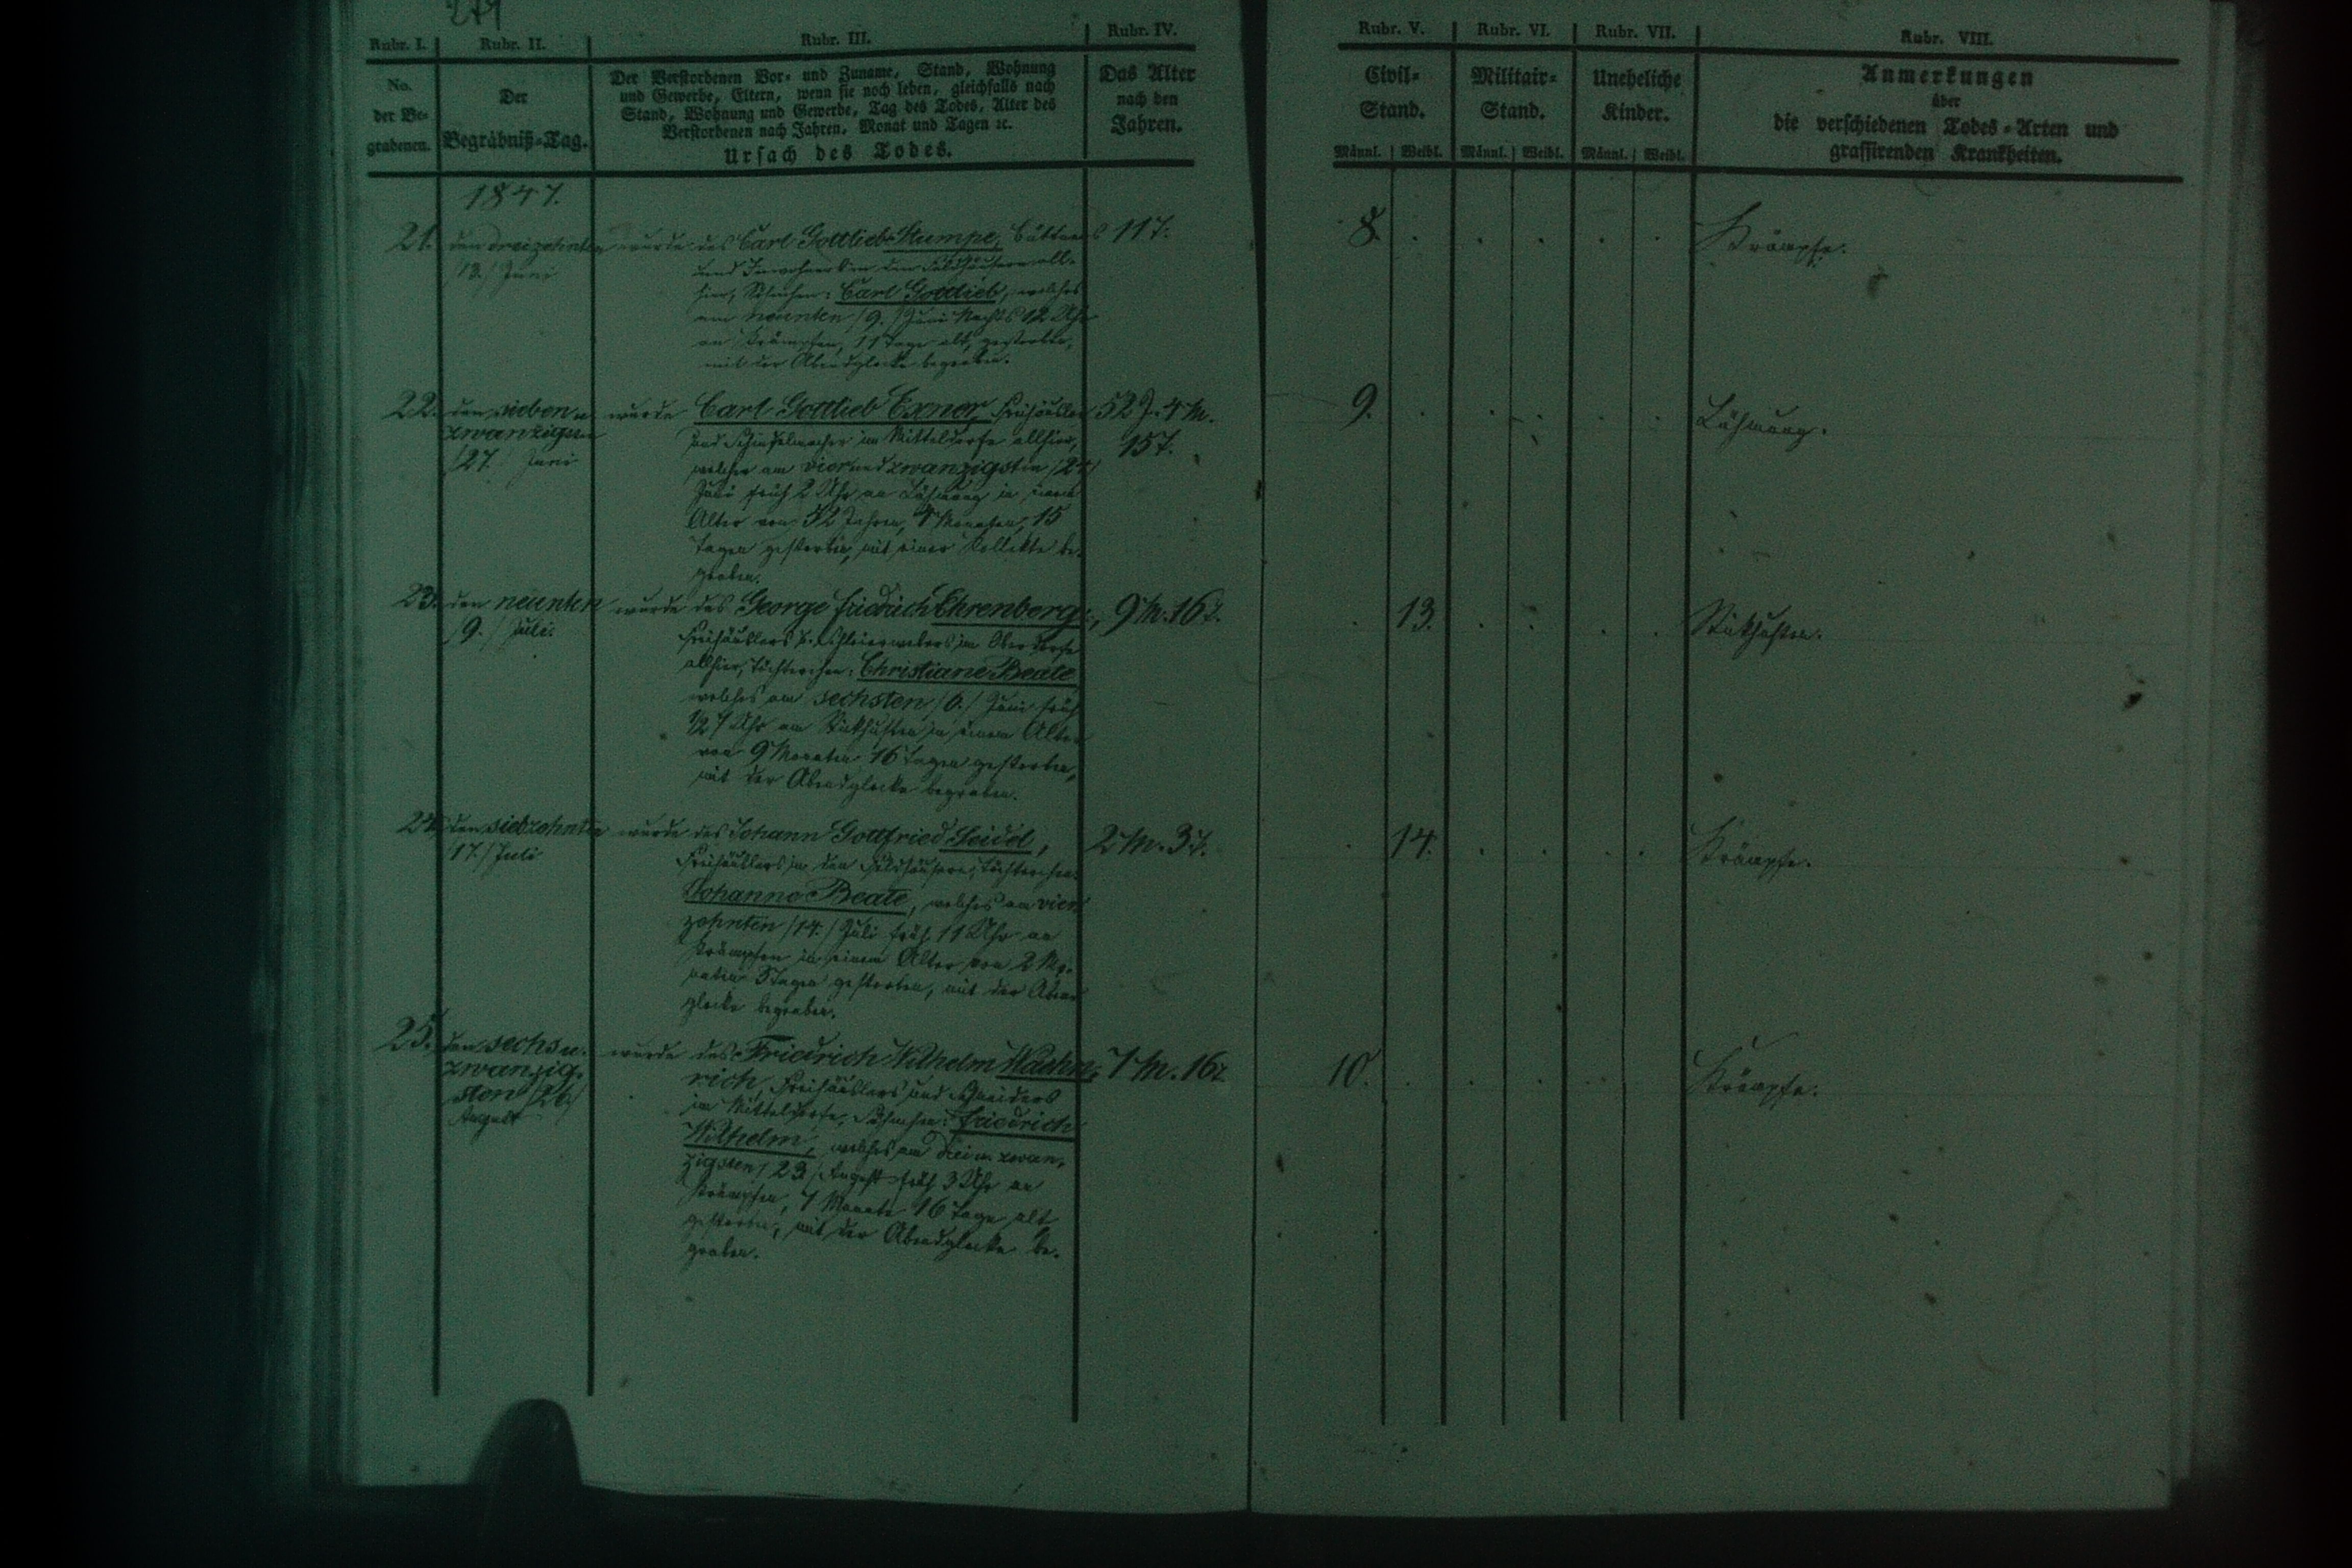 279
Rubr. I.
No.
der Be=
grabenen.
Rubr. II.
Der
Begräbniß=Tag.
Rubr. III.
Der Verstorbenen Vor= und Zuname, Stand, Wohnung
und Gewerbe, Eltern, wenn sie noch leben, gleichfalls nach
Stand, Wohnung und Gewerbe, Tag des Todes, Alter des
Verstorbenen nach Jahren, Monat und Tagen ꝛc.
Ursach des Todes.
Rubr. IV.
Das Alter
nach den
Jahren.
Rubr. V.
Civil=
Stand.
Männl. Weibl.
Rubr. VI.
Militair=
Stand.
Männl. Weibl.
Rubr. VII.
Uneheliche
Kinder.
Männl. Weibl.
Rubr. VIII.
Anmerkungen
über
die verschiedenen Todes=Arten und
grassirenden Krankheiten.
1847.
21.
den dreizehnten
/13./ Juni
wurde des Carl Gottlieb Stumpe, Büttners
und Inwohners in den Feldhäusern all=
hier, Söhnchen: Carl Gottlieb, welches
am neunten /9./ Juni Nachts 12 Uhr
an Krämpfen, 11 Tage alt, gestorben,
mit der Abendglocke begraben.
11 T.
8.
Krämpfe.
22.
den sieben u.
zwanzigsten
/27./ Juni
wurde Carl Gottlieb Exner, Freihäusler
und Schindelmacher im Mitteldorfe allhier,
welcher am vierundzwanzigsten /24./
Juni früh 2 Uhr an Lähmung in einem
Alter von 52 Jahren, 4 Monaten, 15
Tagen gestorben, mit einer Kollekte be=
graben.
52 J. 4 M.
15 T.
9.
Lähmung.
23.
den neunten
/9./ Juli.
wurde des George Friedrich Ehrenberg,
Freihäuslers u. Schleierwebers im Oberdorfe
allhier, Töchterchen: Christiane Beate
welches am sechsten /6./ Juni früh
1/2 7 Uhr am Stickhusten in einem Alter
von 9 Monaten 16 Tagen gestorben,
mit der Abendglocke begraben.
9 M. 16 T.
13.
Stickhusten.
24.
den siebzehnten
/17./ Juli
wurde des Johann Gottfried Seidel,
Freihäuslers in den Feldhäusern, Töchterchen:
Johanne Beate, welches am vier=
zehnten /14./ Juli früh 11 Uhr an
Krämpfen in einem Alter von 2 Mo=
naten 3 Tagen gestorben, mit der Abend
glocke begraben.
2 M. 3 T.
14.
Krämpfe.
25.
den sechs u.
zwanzig=
sten /26./
August
wurde des Friedrich Wilhelm
rich, Freihäuslers und Schneiders
im Mitteldorfe, Söhnchen: Friedrich
Wilhelm, welches am drei u. zwan=
zigsten /23./ August früh 3 Uhr an
Krämpfen, 7 Monate 16 Tage alt
gestorben, mit der Abendglocke be=
graben.
7 M. 16 T.
10.
Krämpfe.